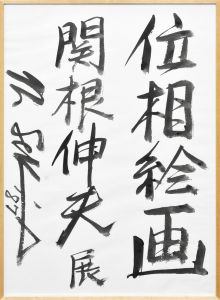 位相絵画
関根伸夫展